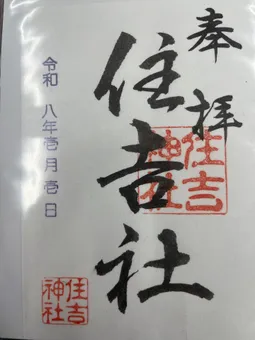 奉拝
住吉社
住吉神社
令和 八年壱月壱日
住吉神社